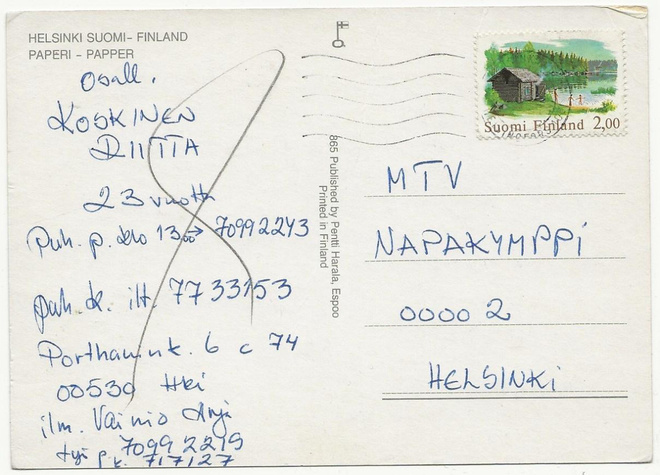 HELSINKI SUOMI - FINLAND
PAPERI - PAPPER
Osall.
KOSKINEN
RIITTA
23 vuotta
Puh. p. klo 13.00→ 70992243
puh k. ilt. 7733153
Porthanink. 6 c 74
00530 Hki
ilm. Vainio Anja
työ p. 70992219
k. 717127
865 Published by Pentti Harala, Espoo
Printed in Finland
Suomi Finland 2,00
MTV
NAPAKYMPPI
00002
HELSINKI